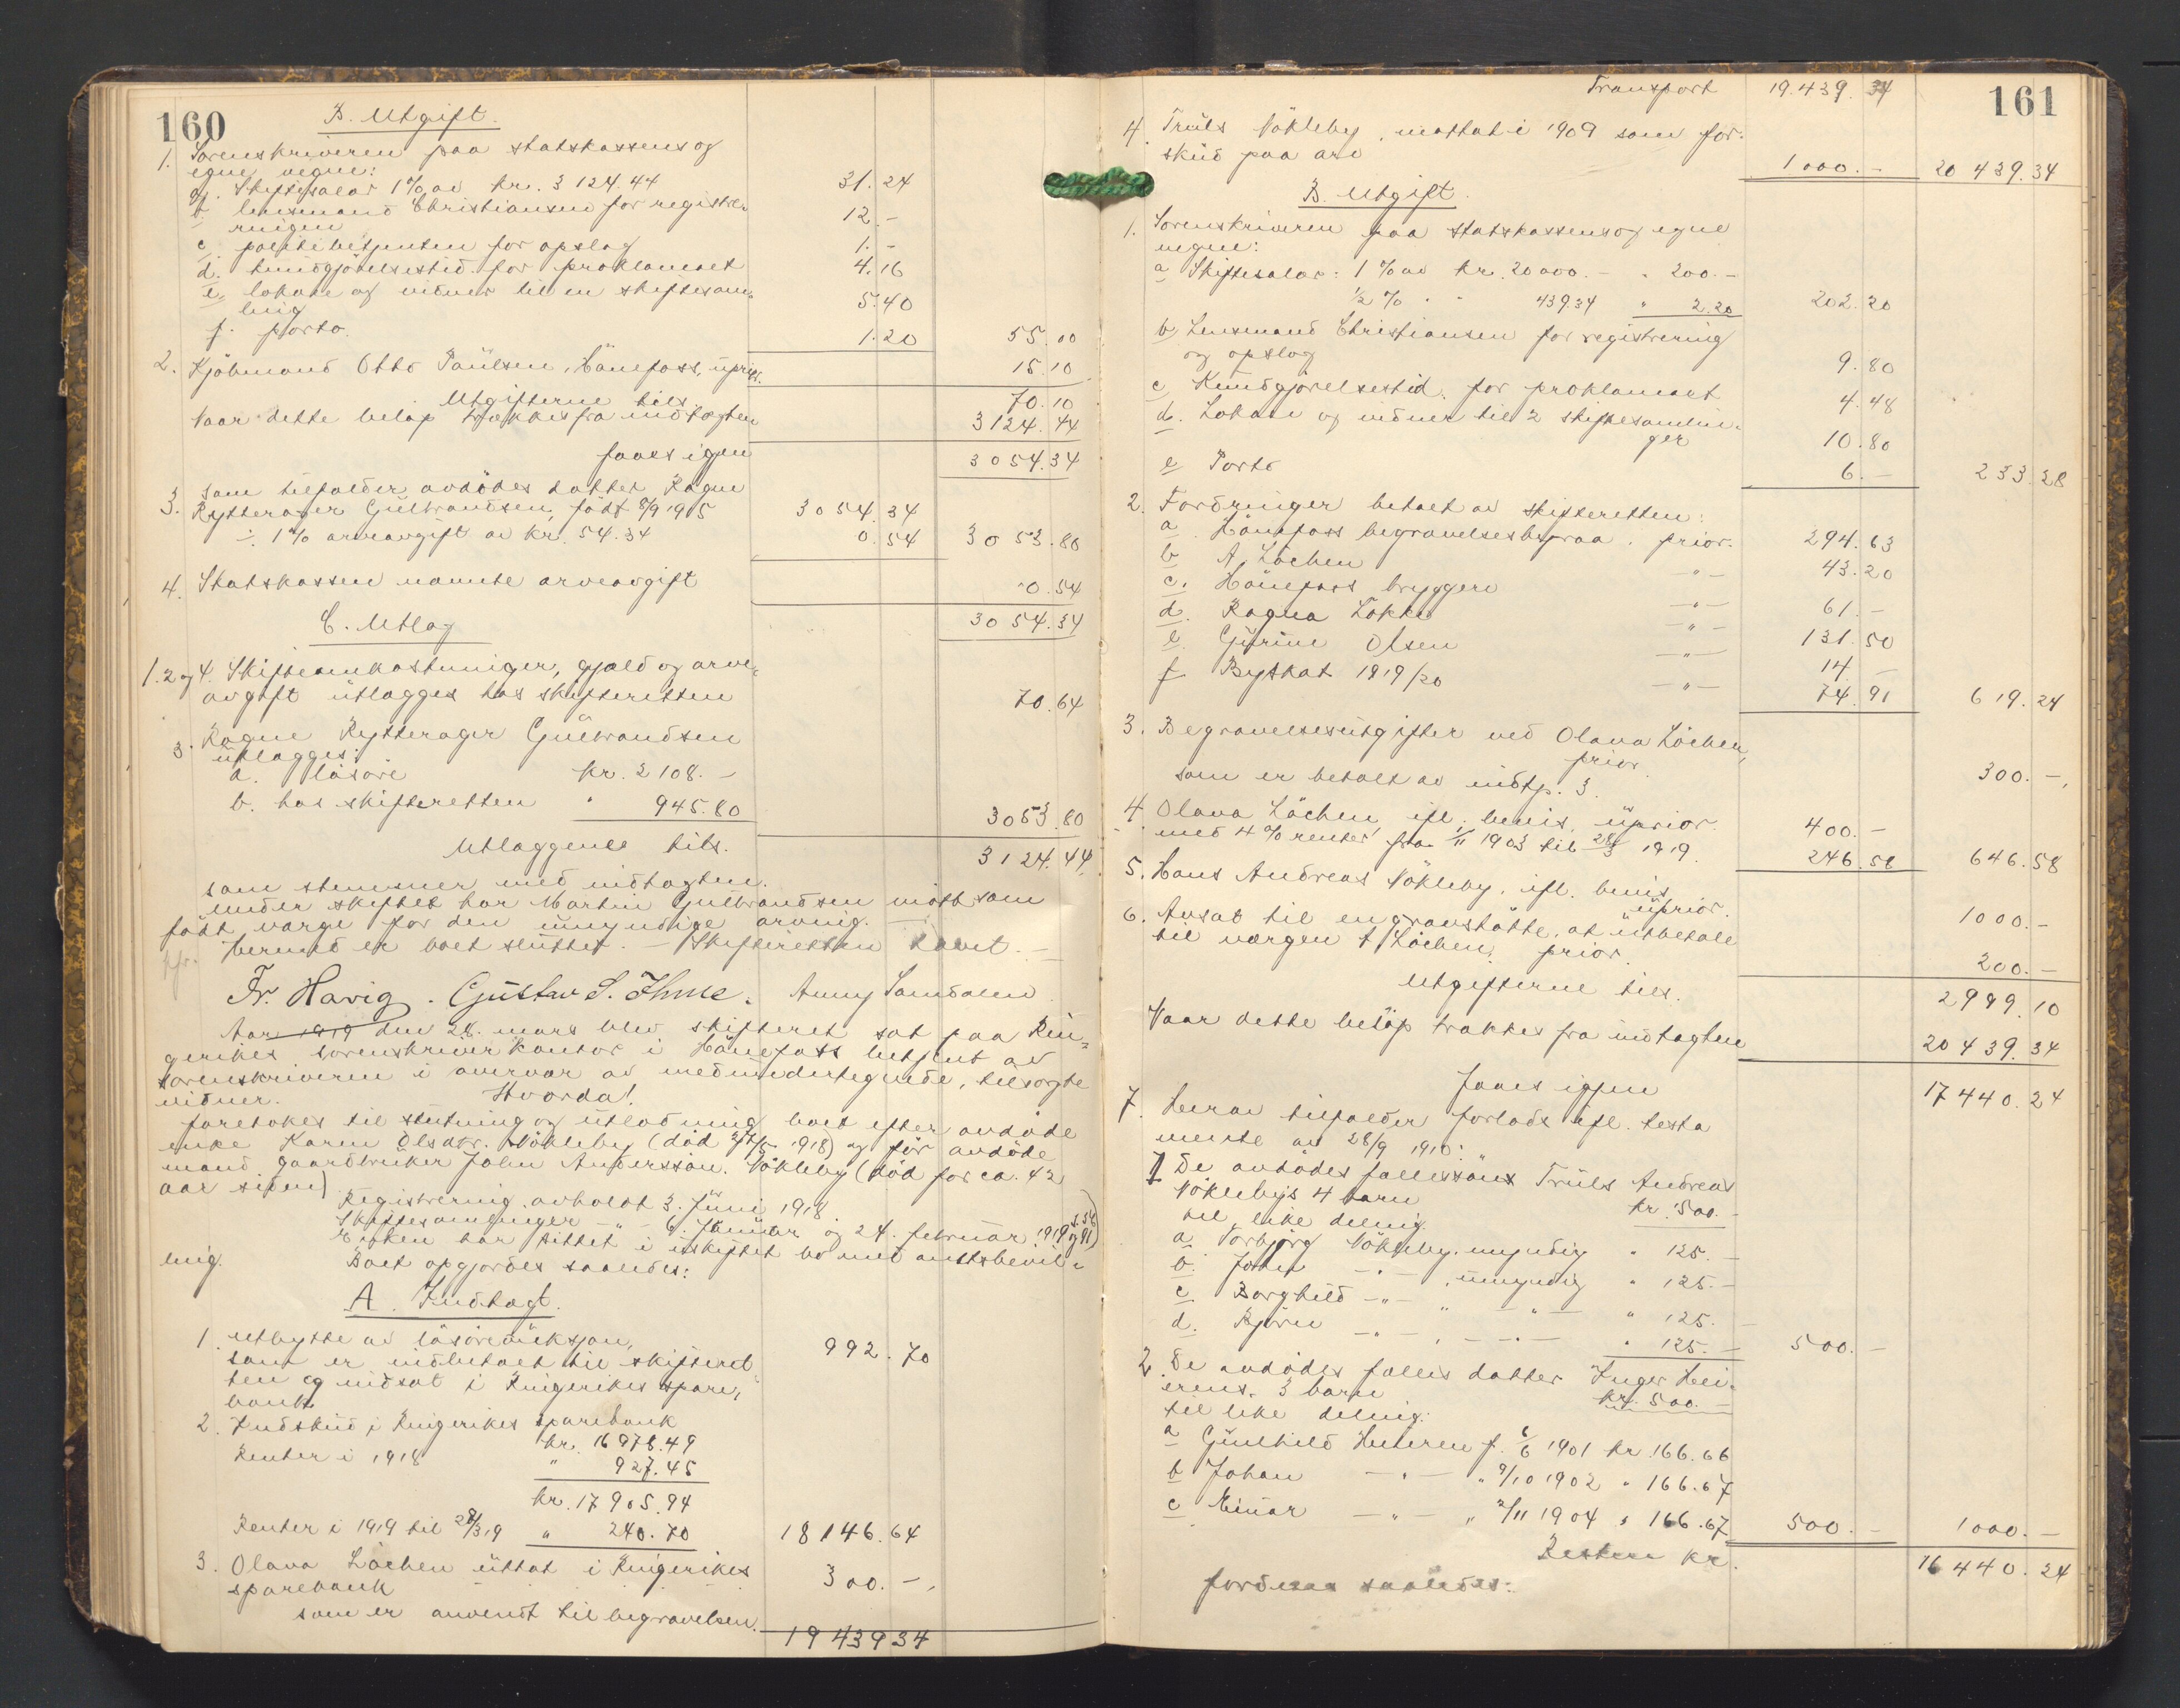 160
B. Utgift.
1. Sorenskriveren paa statskassens og
egne vegne:
a. Skiftesalær 1% av kr. 3124.44 31.24
b. lensmand Christiansen for registre-
ringen 12.-
c. politibetjenten for opslag 1.-
d. kundgjörelsestid. for proklamaet 4.16
e. lokale og vidner til en skiftesam-
ling 5.40
f. porto. 1.20 55.00
2. Kjöbmand Otto Paulsen, Hönefoss, uprior. 15.10
Utgifterne tils. 70.10
Naar dette belöp trækkes fra indtægten 3124.44
faaes igjen 3054.34
som tilfalder avdödes datter Ragne
3. Rytterager Gulbrandsen, födt 8/9 1915 3054.34
÷ 1% arveavgift av kr. 54.34 0.54 3053.80
4. Statskassen nævnte arveavgift 0.54
3054.34
C. Utlæg
1. 2 og 4. Skifteomkostninger, gjæld og arve-
avgift utlægges hos skifteretten 70.64
3. Ragne Rytterager Gulbrandsen
utlægges:
a. lösöre kr. 2108.-
b. hos skifteretten " 945.80 3053.80
Utlæggende tils. 3124.44
som stemmer med indtægten.
Under skiftet har Martin Gulbrandsen mött som
födt værge for den umyndige arving. —
Hermed er boet sluttet. — Skifteretten hævet. —
Fr. Harig. Gustav S. Ihme. Anny Samdalen
Aar 1919 den 28. mars blev skifteret sat paa Rin-
gerikes sorenskriverkontor i Hönefoss betjent av
sorenskriveren i overvær av medundertegnede, tilsagte
vidner. Hvorda!
foretokes til slutning og utlodning boet efter avdöde
enke Karen Olsdtr. Nökleby (död 1918) og för avdöde
mand gaardbruker John Anderssön Nökleby (död for ca. 42
aar siden)
Registrering avholdt 3. Juni 1918
Skiftesamlinger —"— 6. Januar og 24. februar 1919
Enken har sittet i uskiftet bo med amtsbevil-
ling. Boet opgjordes saaledes:
A. Indtægt.
1. Utbytte av lösöreauksjon, 992.70
som er indbetalt til skifteret-
ten og indsat i Ringerikes spare-
bank
2. Indskud i Ringerikes sparebank
kr. 16978.49
Renter i 1918 " 927.45
kr. 17905.94
Renter i 1919 til 28/3 19 " 240.70 18146.64
3. Olava Löchen uttat i Ringerikes
sparebank 300.-
som er anvendt til begravelsen.
19439 34
161
Transport 19.439.34
4. Truls Nökleby, mottat i 1909 som for-
skud paa arv 1000.- 20 439.34
B. Utgift.
1. Sorenskriveren paa statskassens og egne
vegne:
a. Skiftesalær: 1% av kr. 20000.- " 200.-
1/2 % " " 439.34 " 2.20 202.20
b. Lensmand Christiansen for registrering
og opslag 9.80
c. Kundgjörelsestid. for proklamaet 4.48
d. Lokale og vidner til 2 skiftesamlin-
ger 10.80
e. Porto 6.- 233.28
2. Fordringer betalt av skifteretten:
a. Hönefoss begravelsesbyraa, prior. 294.63
b. A. Löchen —"— 43.20
c. Hönefoss bryggeri —"— 61.-
d. Ragna Lökke —"— 131.50
e. Gurine Olsen —"— 14 -
f. Byskat 1919/20 —"— 74.91 619.24
3. Begravelsesutgifter ved Olava Löchen,
prior.
som er betalt av indtp. 3. 300.-
4. Olava Löchen, ifl. bevis, uprior. 400.-
med 4% renter fra 1/11 1903 til 28/3 1919. 246.58 646.58
5. Hans Andreas Nökleby, ifl. bevis,
uprior. 1000.-
6. Avsat til en gravstötte, at utbetale
til værgen A. Löchen, prior. 200.-
Utgifterne tils. 2999.10
Naar dette belöp trækkes fra indtægten 20 439.34
faaes igjen 17440.24
7. Herav tilfalder forlods ifl. testa
mente av 28/9 1910:
1. De avdödes fælles sön Truls Andreas
Nökleby's 4 barn kr. 500.-
til like deling.
a. Torbjörg Nökleby, myndig " 125.-
b. John —"—, umyndig " 125.-
c. Borghild —"— " —"— " 125.-
d. Björn —"—, —"— " 125.- 500.-
2. De avdödes fælles datter Inger Hei-
erens 3 barn kr. 500.-
til like deling:
a. Gunhild Heieren f. 6/6 1901 kr. 166.66
b. Johan —"— " 9/10 1902 " 166.67
c. Einar —"— " 2/11 1904 " 166.67 500.- 1000.-
Resten kr. 16440.24
fordeles saaledes: